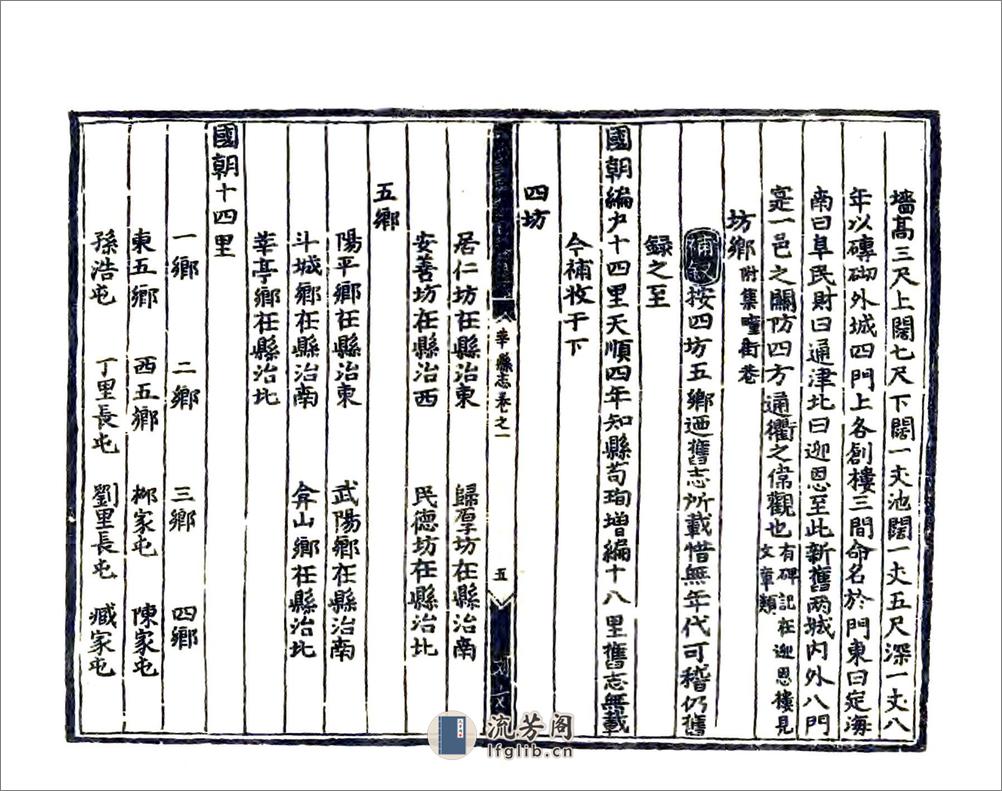 墻高三尺上闊七尺下闊一丈池闊一丈五尺深一丈八
年以磚砌外城四門上各創樓三間命名於門東曰定海
南曰阜民財曰通津北曰迎恩至此新舊兩城内外八門
寔一邑之關防四方通衢之偉觀也有碑記在迎恩樓見
文章類
坊鄉附集疃街巷
補叙按四坊五鄉迺舊志所載惜無年代可稽仍舊
録之至
國朝編戸十四里天順四年知縣苟珣增編十八里舊志無載
今補收于下
四坊
居仁坊在縣治東 歸厚坊在縣治南
安善坊在縣治西 民德坊在縣治北
五鄉
陽平鄉在縣治東 武陽鄉在縣治南
斗城鄉在縣治南 弇山鄉在縣治北
莘亭鄉在縣治北
國朝十四里
一鄉 二鄉 三鄉 四鄉
東五鄉 西五鄉 柳家屯 陳家屯
孫浩屯 丁里長屯 劉里長屯 臧家屯
莘縣志卷之一
五
流芳阁
lfglib.cn